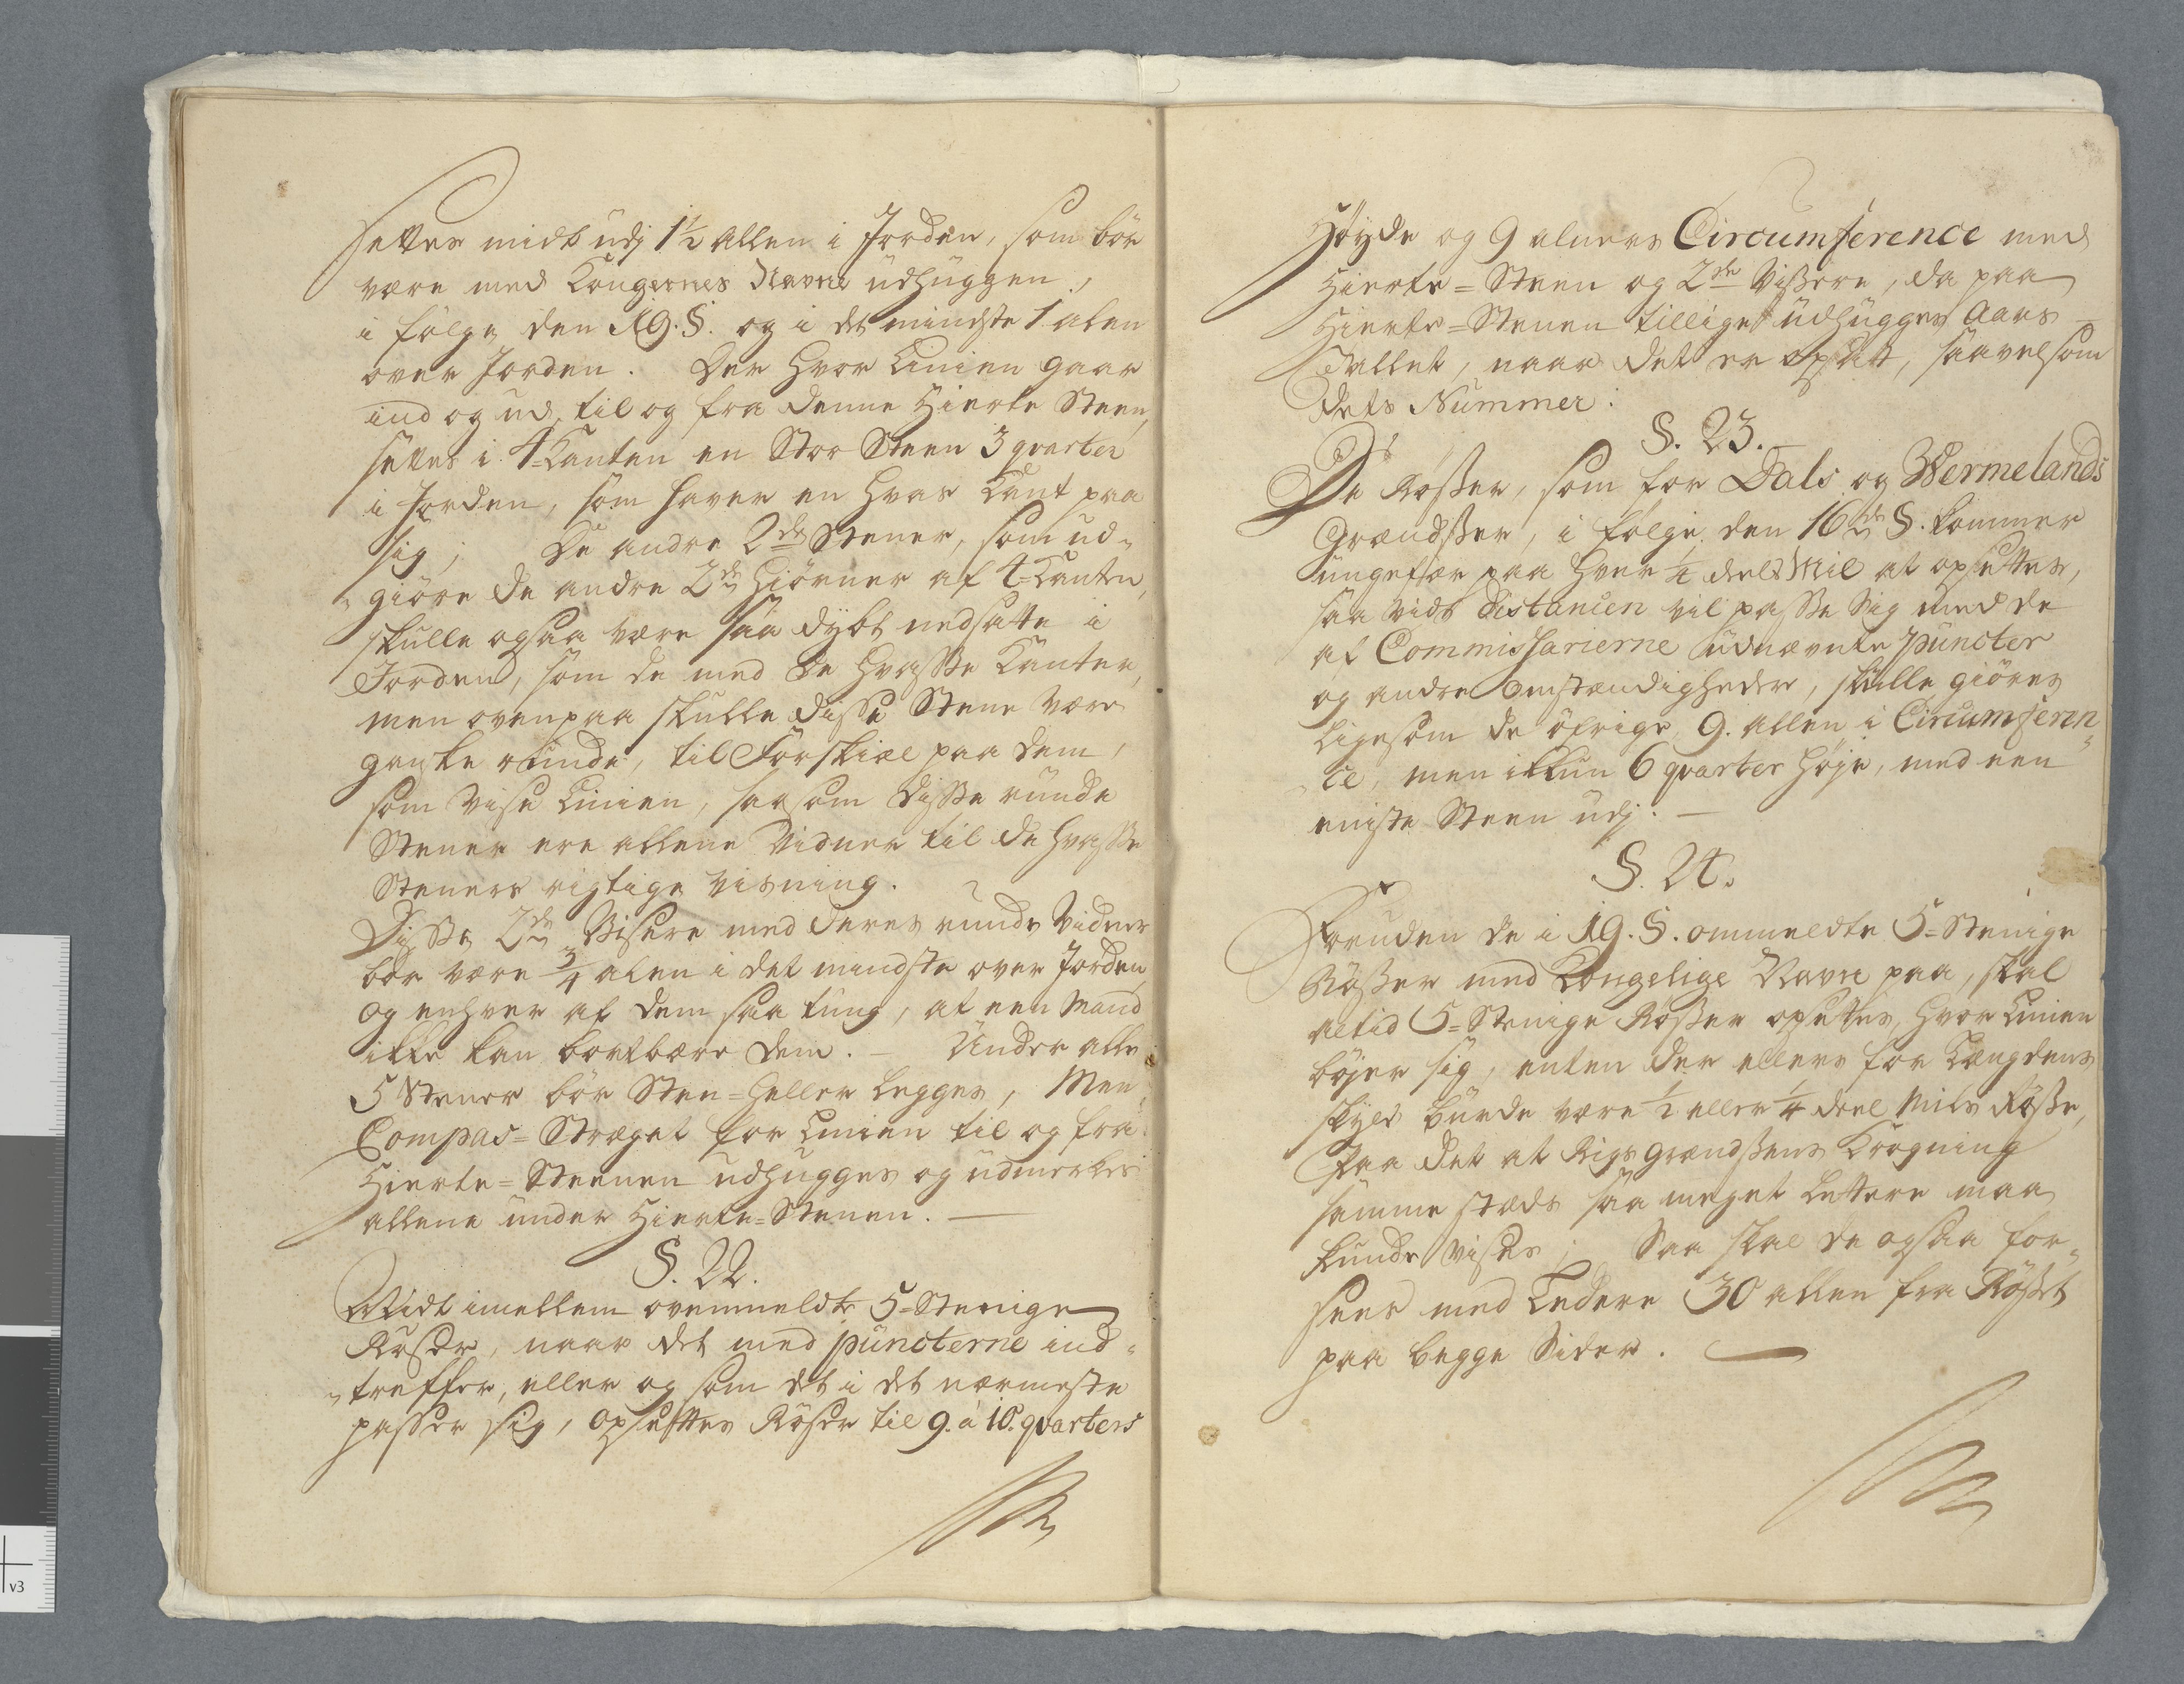 settes midt udj 1½ Allen i Jorden, som bör
være med Kongernes Navne udhuggen,
i fölge den 19. §. og i det mindste 1 alen
over Jorden. Der hvor Linien gaar
ind og ud, til og fra denne Hierte Steen,
settes i 4=Kanten en Stor Steen 3 qvarter
i Jorden, som haver en hvas Kant paa
sig; De andre 2de Stener, som ud=
=giöre de andre 2de Hiörner af 4=Kanten,
skulle ogsaa være saa dybt nedsatte i
Jorden, som de med de hvasse Kanter,
men ovenpaa skulle disse Stene være
ganske runde, til Forskiæl paa dem,
som vise Linien, saasom disse runde
Stener ere allene Vidner til de hvasse
Steners rigtige Visning.
Disse 2de Visere med deres runde Vidner
bör være ¾ alen i det mindste over Jorden,
og enhver af dem saa tung, at een Mand
ikke kan bortbære dem. — Under alle
5 Stener bör Sten=heller legges, Men
Compas=Stræget for Linien til og fra
Hierte=Steenen udhugges og udmerkes
allene under Hierte=Stenen. —
§. 22.
Midt imellem ovenmeldte 5=Stenige
Röser, naar det med puncterne ind=
=treffer, eller og som det i det nærmeste
passer sig, opsettes Röser til 9. à 10. qvarters
Höyde og 9 alners Circumference med
Hierte=Steen og 2de Vissere, da paa
Hierte=Stenen tilliget udhugges Aars
Tallet, naar det er opsat, saavelsom
dets Nummer:
§. 23.
De Rösser, som for Dals og Wermelands
Grændsser, i fölge den 16de §. kommer
ungefær paa hver ¼ deels Mil at opsettes,
saa vidt Distancen vil passe sig med de
af Commissarierne udnævnte puncter
og andre Omstændigheder, skulle giöres
ligesom de öfrige, 9. allen i Circumferen=
=ce, men ikkun 6 qvarter höje, med een
eniste Steen udj. —
§. 24.
Foruden de i 19. §. ommeldte 5=Stenige
Rösser med Kongelige Navne paa, skal
altid 5=Stenige Rösser opsettes, hvor Linien
böjer sig, enten der ellers for Længdens
skyld burde være ½ eller ¼ deel Mils Rösse,
Paa det at Rigs Grændssens Krogning
samme stæds saa meget lettere maa
kunde vises; Saa skal de ogsaa for=
sees med Ledere 30 allen fra Rösset
paa begge Sider. —